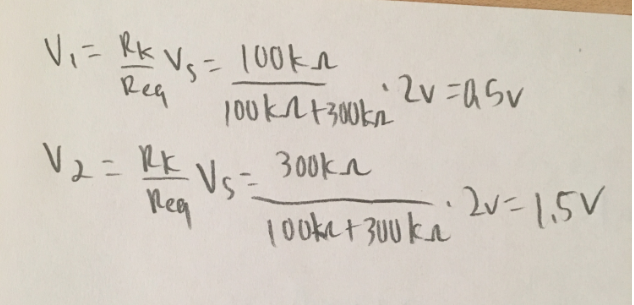 V₁ = Rk/Req Vs = 100kΩ/(100kΩ+300kΩ) · 2V = 0.5V
V₂ = Rk/Req Vs = 300kΩ/(100kΩ+300kΩ) · 2V = 1.5V